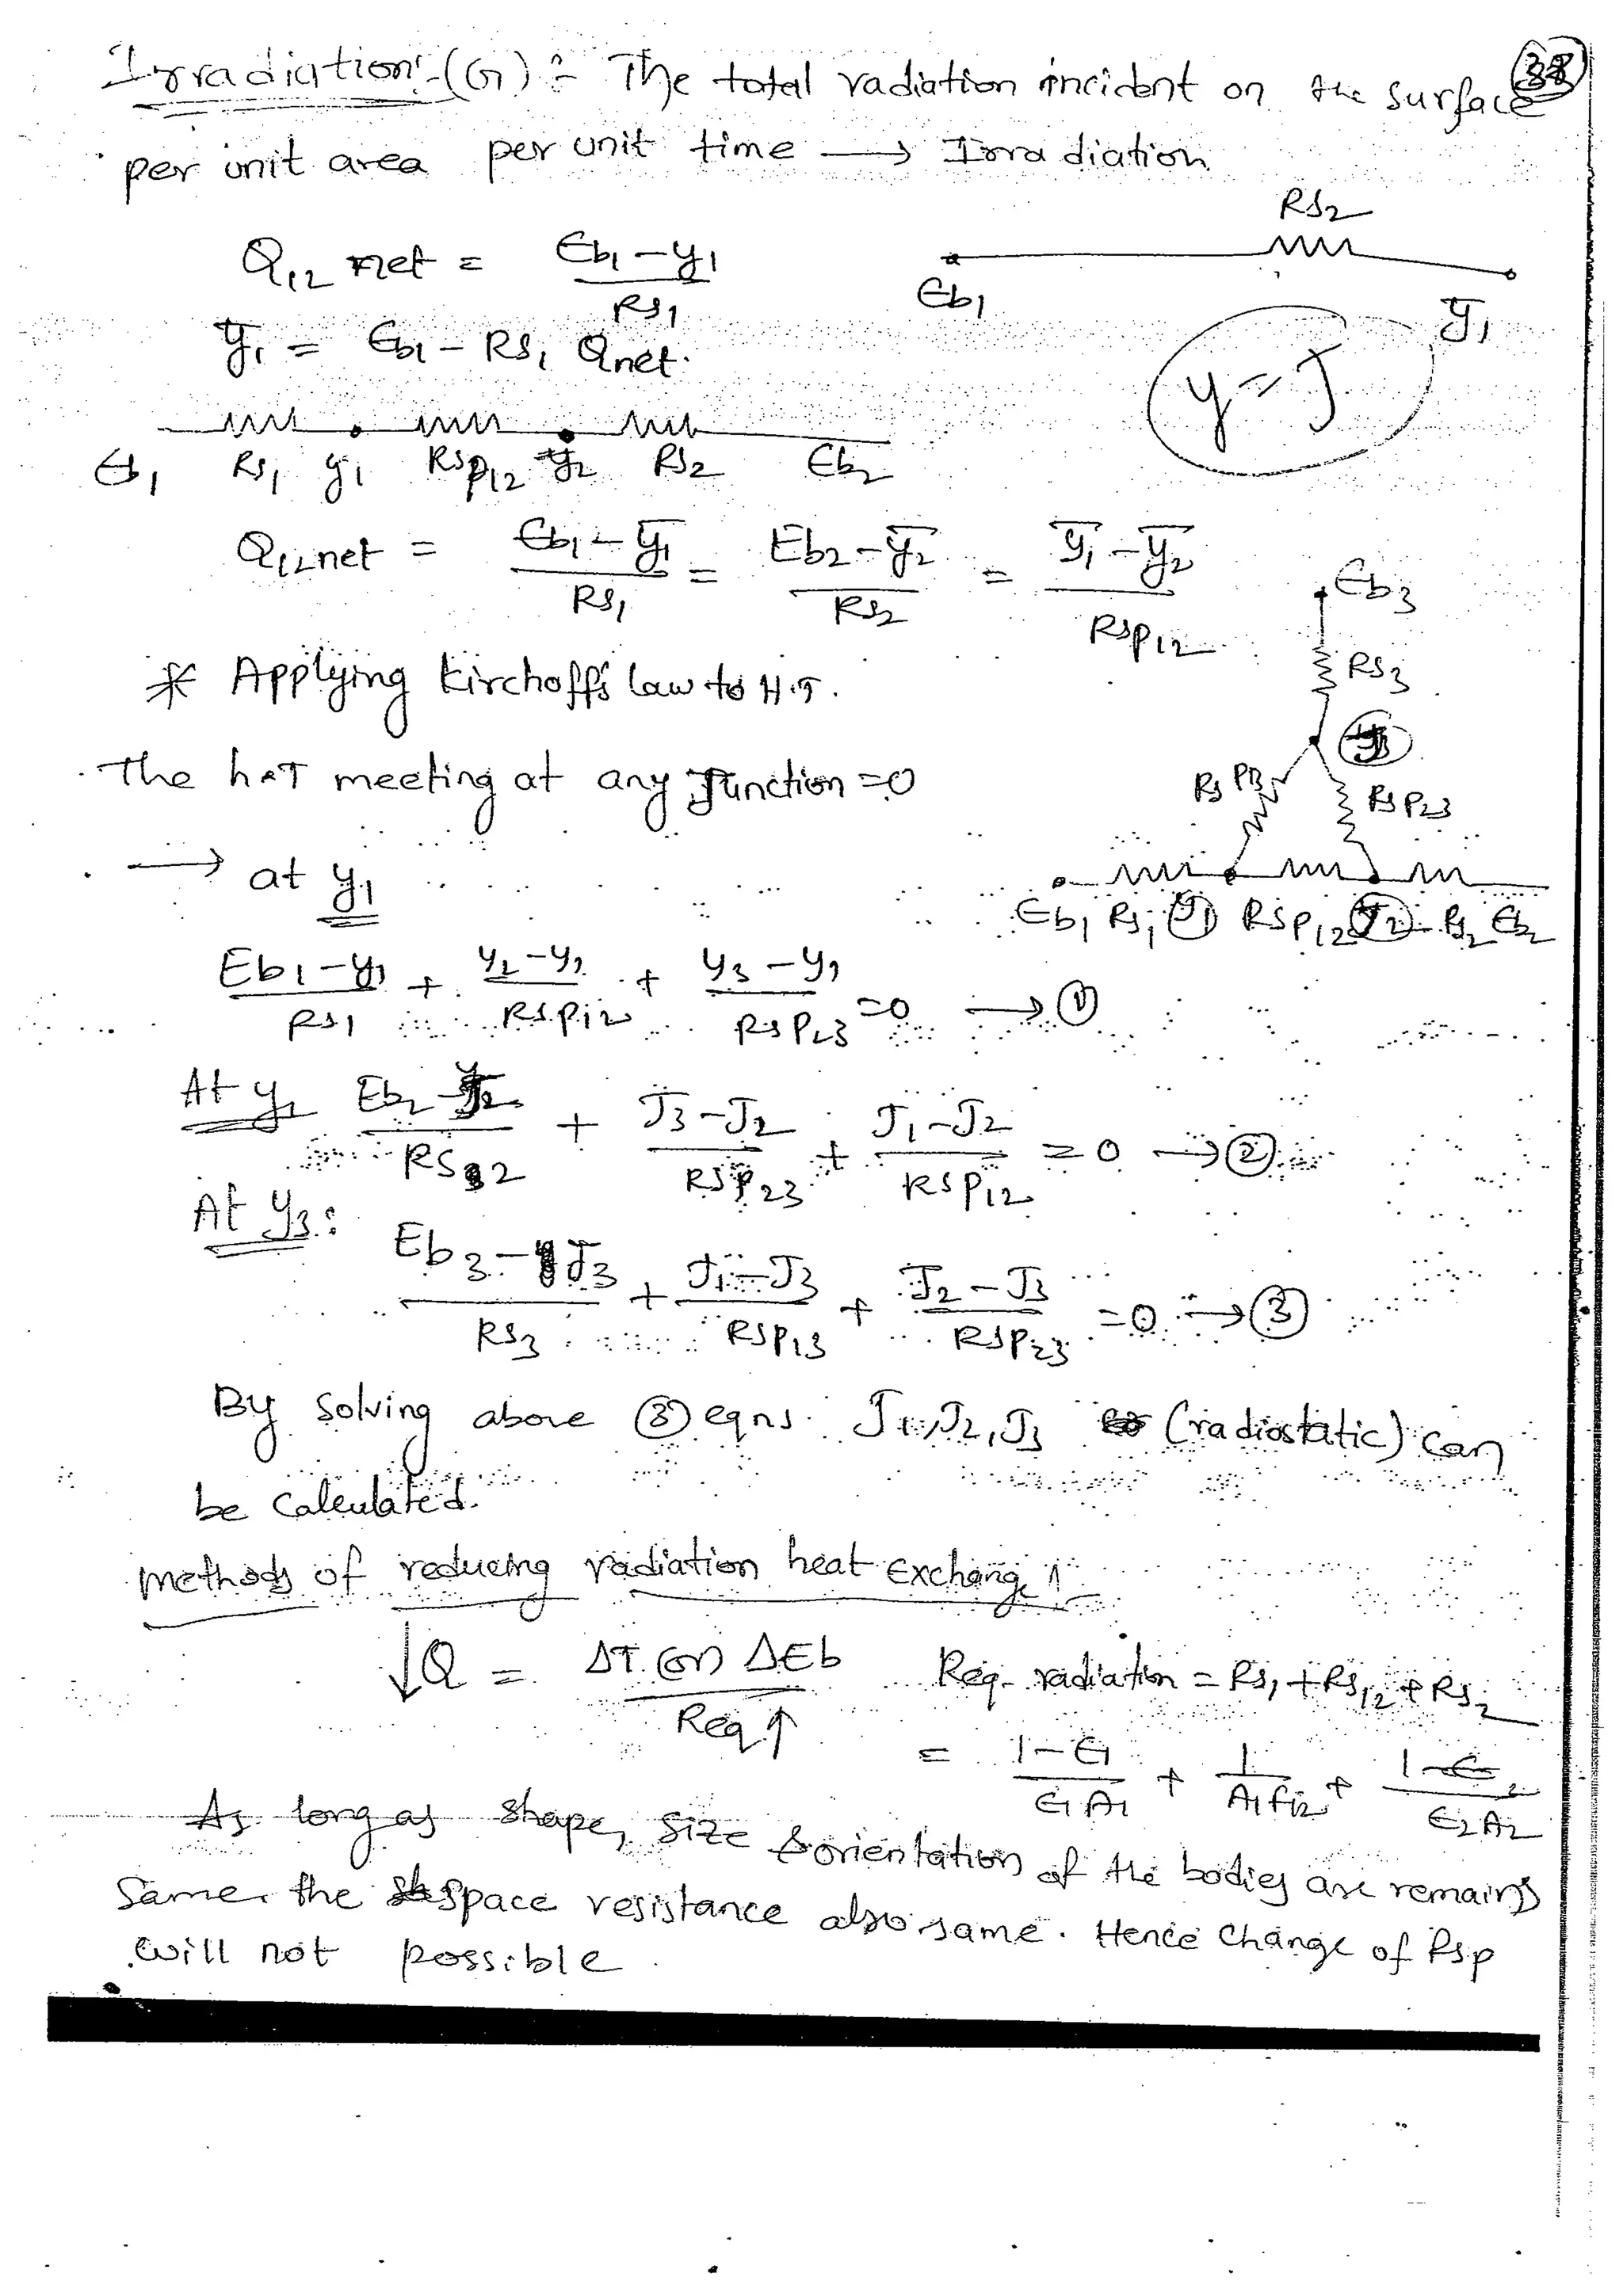 Irradiation:-(G) :- The total radiation incident on the surface
38
per unit area per unit time → Irradiation
Q12 net = Eb1 - y1 / RS1
RS2
Eb1
y1
y1 = Eb1 - RS1 Qnet.
y = J
Eb1 RS1 y1 RSp12 y2 RS2 Eb2
Q12net = Eb1 - y1 / RS1 = Eb2 - y2 / RS2 = y1 - y2 / RSp12
Eb3
RS3
* Applying Kirchoff's law to H.T.
The h.T meeting at any Junction = 0
RSP13
RSP23
→ at y1
Eb1 RS1 y1 RSP12 J2 RS2 Eb2
Eb1 - y1 / RS1 + y2 - y1 / RSp12 + y3 - y1 / RSP23 = 0 → ①
At y2 Eb2 - J2 / RS2 + J3 - J2 / RSP23 + J1 - J2 / RSP12 = 0 → ②
At y3: Eb3 - J3 / RS3 + J1 - J3 / RSP13 + J2 - J3 / RSP23 = 0 → ③
By solving above ③ eqns. J1, J2, J3 (radiostatic) can
be calculated.
Methods of reducing radiation heat Exchange
↓Q = ΔT (or) ΔEb / Req ↑
Req. radiation = RS1 + RS12 + RS2
= 1 - ϵ1 / ϵ1 A1 + 1 / A1 f12 + 1 - ϵ2 / ϵ2 A2
As long as shape, size & orientation of the bodies are remains
same. the space resistance also same. Hence change of Rsp
will not possible.